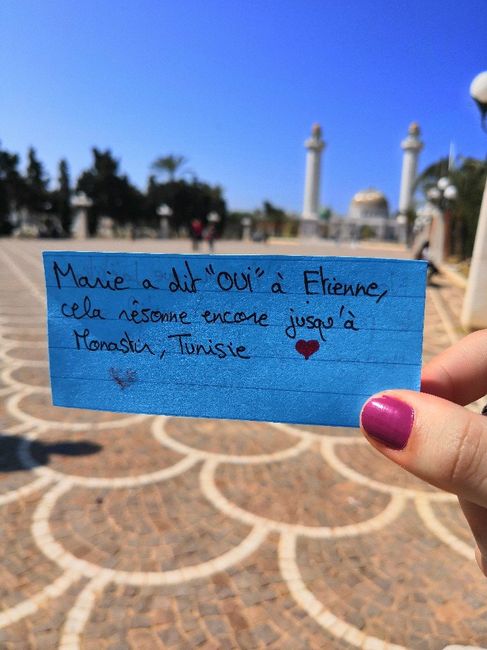 Marie a dit "OUI" à Etienne,
cela résonne encore jusqu'à
Monastir, Tunisie